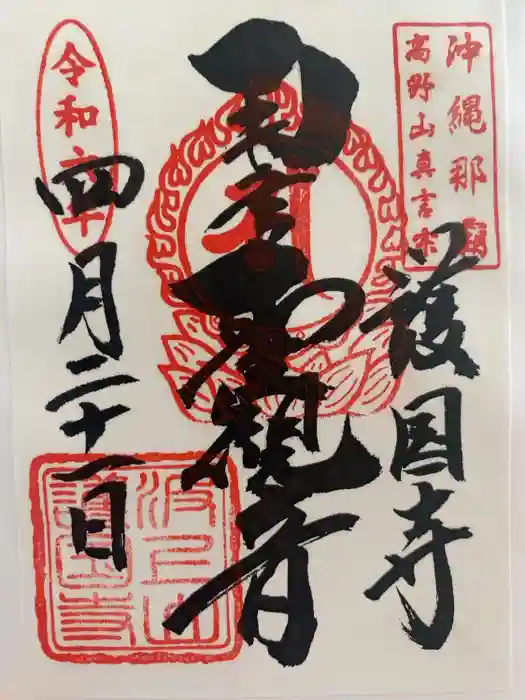 沖縄那覇
高野山真言宗
護国寺
観音
令和六年
四月二十一日
波上山
護国寺